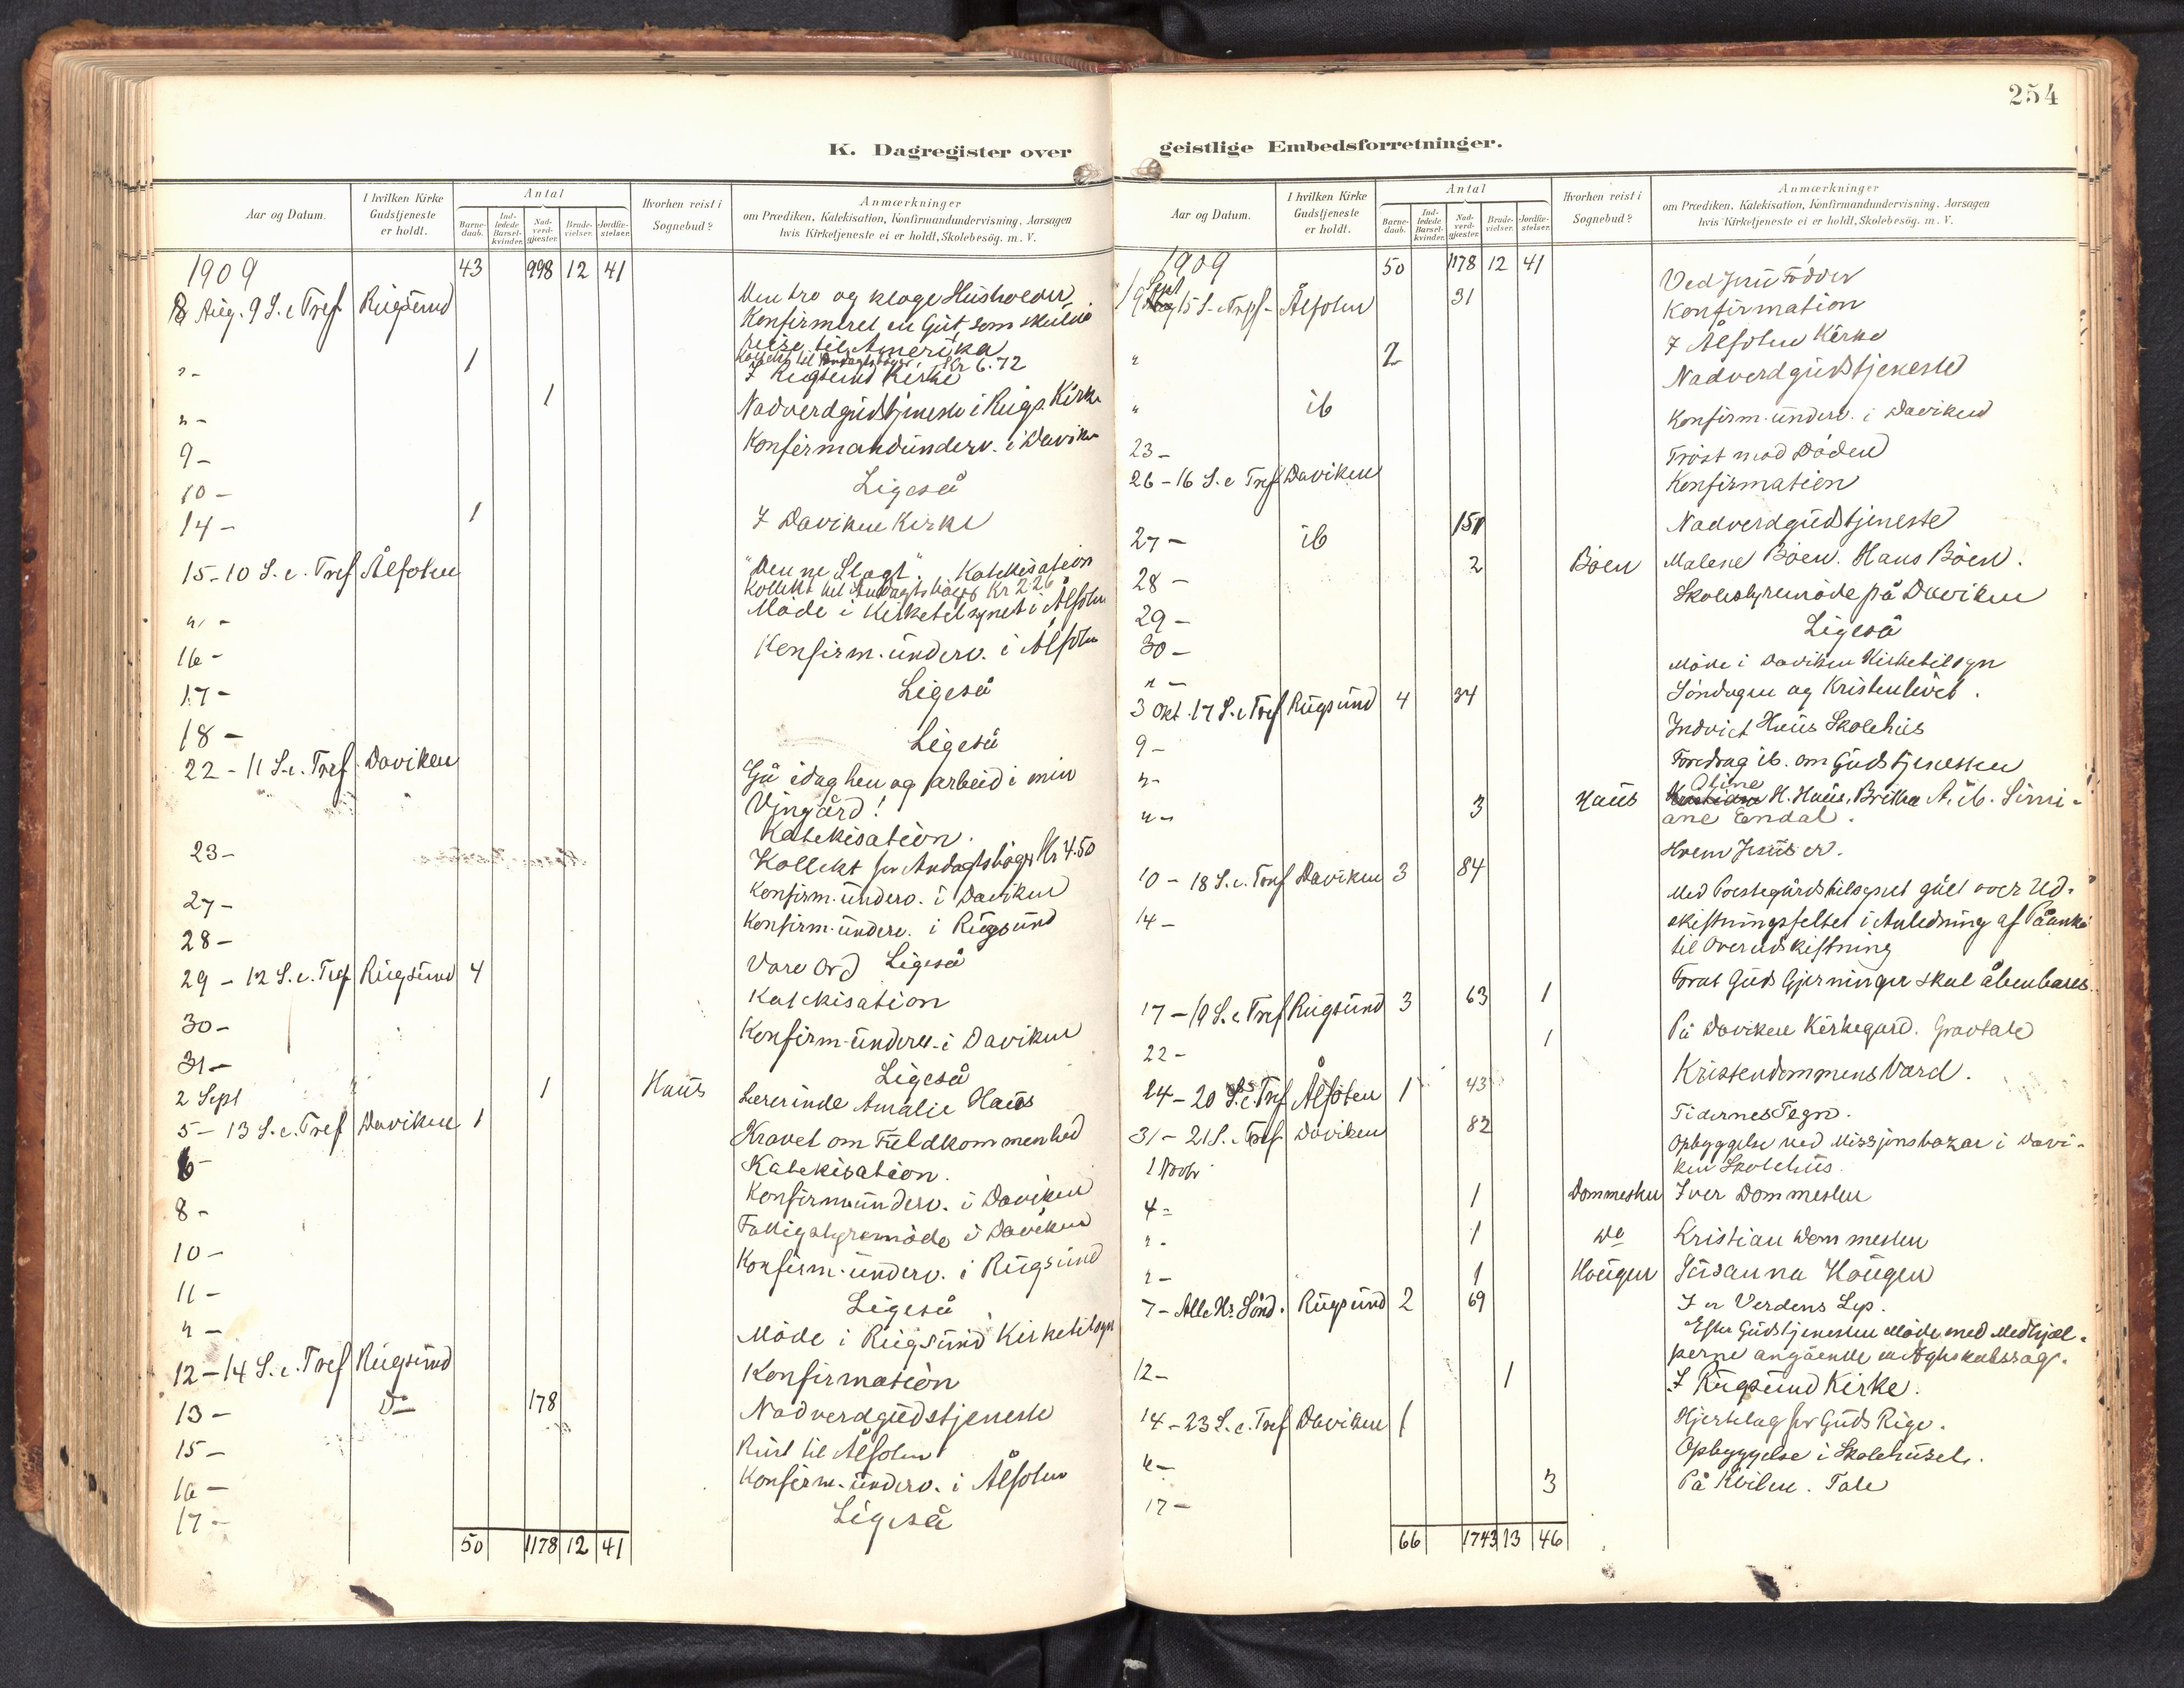 254
K. Dagregister over geistlige Embedsforretninger.
Aar og Datum. I hvilken Kirke Gudstjeneste er holdt. Antal Barnedaab. Indledede Barselkvinder. Nadverdgjæster. Brudevielser. Jordfæstelser. Hvorhen reist i Sognebud? Anmærkninger om Prædiken, Katekisation, Konfirmandundervisning, Aarsagen hvis Kirketjeneste ei er holdt, Skolebesøg. m. V.
1909 43 998 12 41
8 Aug. 9 S. e Tref Rugsund Den tro og kloge Husholder
Konfirmeret en Gut, som skulde
reise til Amerika
Kollekt til Andagtsbøger Kr 6.72
"- 1 I Rugsund Kirke
"- 1 Nadverdgudstjeneste i Rugs. Kirke
9- Konfirmandunderv. i Daviken
10- Ligeså
14- 1 I Daviken Kirke
15-10 S. e. Tref Ålfoten "Denne Slægt". Katekisation
Kollekt til Andagtsbøger Kr 2.26
"- Møde i Kirketilsynet i Ålfoten
16- Konfirm. underv. i Ålfoten
17- Ligeså
18- Ligeså
22-11 S. e. Tref Daviken Gå idag hen og arbeid i min
Vingård!
Katekisation.
Kollekt for Andagtsbøger Kr 4.50
23- Konfirm. underv. i Daviken
27- Konfirm. underv. i Rugsund
28- Ligeså
29-12 S. e. Tref Rugsund 4 Vore Ord
Katekisation
30- Konfirm. underv. i Daviken
31- Ligeså
2 Sept 1 Haus Lærerinde Amalie Haus
5-13 S. e. Tref Daviken 1 Kravet om Fuldkommenhed
Katekisation.
6- Konfirm. underv. i Daviken
8- Fattigstyremøde i Daviken
10- Konfirm. underv. i Rugsund
11- Ligeså
"- Møde i Rugsund Kirketilsyn
12-14 S. e. Tref Rugsund Konfirmation
13- Do 178 Nadverdgudstjeneste
15- Reist til Ålfoten
16- Konfirm. underv. i Ålfoten
17- Ligeså
50 1178 12 41
Aar og Datum. I hvilken Kirke Gudstjeneste er holdt. Antal Barnedaab. Indledede Barselkvinder. Nadverdgjæster. Brudevielser. Jordfæstelser. Hvorhen reist i Sognebud? Anmærkninger om Prædiken, Katekisation, Konfirmandundervisning, Aarsagen hvis Kirketjeneste ei er holdt, Skolebesög. m. V.
1909 50 1178 12 41
19 Sept 15 S. e Tref- Ålfoten 31 Ved Jesu Fødder
Konfirmation
" 2 I Ålfoten Kirke
" ib Nadverdgudstjeneste
23- Konfirm. underv. i Daviken
26-16 S. e Tref Daviken Trøst mod Døden
Konfirmation
27- ib 151 Nadverdgudstjeneste
28- 2 Bøen Malene Bøen. Hans Bøen.
29- Skolestyremøde på Daviken
30- Ligeså
"- Møde i Daviken Kirketilsyn
3 Okt. 17 S. e Tref Rugsund 4 34 Søndagen og Kristenlivet.
9- Indviet Haus Skolehus
"- Foredrag ib. om Gudstjenesten
"- 3 Haus Oline H. Haus, Brithe A. ib. Simi-
ane Endal.
10-18 S. e. Tref Daviken 3 84 Hvem Jesus er.
14- Med Prestegårdstilsynet gået over Ud-
skiftningsfeltet i Anledning af Påanke
til Overudskiftning
17-19 S. e Tref Rugsund 3 63 1 Forat Guds Gjerninger skal åbenbares.
22- 1 På Daviken Kirkegard. Gravtale
24-20 S. e. Tref Ålfoten 1 43 Kristendommens Værd.
31-21 S. e Tref Daviken 82 Tidernes Tegn.
1 Novbr Opbyggelse ved Missjonsbazar i Davi-
ken Skolehus.
4- 1 Dommesten Iver Dommesten
"- 1 do Kristian Dommesten
"- 1 Hougen Susanna Hougen
7- Alle Hs. Sønd. Rugsund 2 69 I er Verdens Lys.
Efter Gudstjenesten Møde med Medhjæl-
perne angående
12- 1 I Rugsund Kirke.
14-23 S. e. Tref Daviken 1 Hjertelag for Guds Rige.
"- Opbyggelse i Skolehuset.
17- 3 På Kvilen. Tale
66 1743 13 46